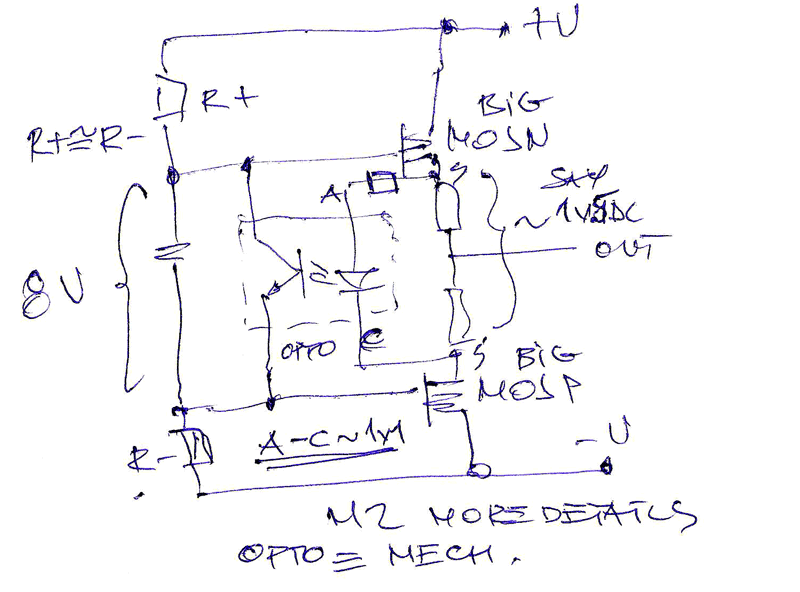 +U
R+
BIG
MOSN
R+≅R-
S
SAY
~1V5DC
A
OUT
8V
OPTO
C
S
BIG
MOSP
A-C~1V1
-U
R-
M2 MORE DETAILS
OPTO ≡ MECH.